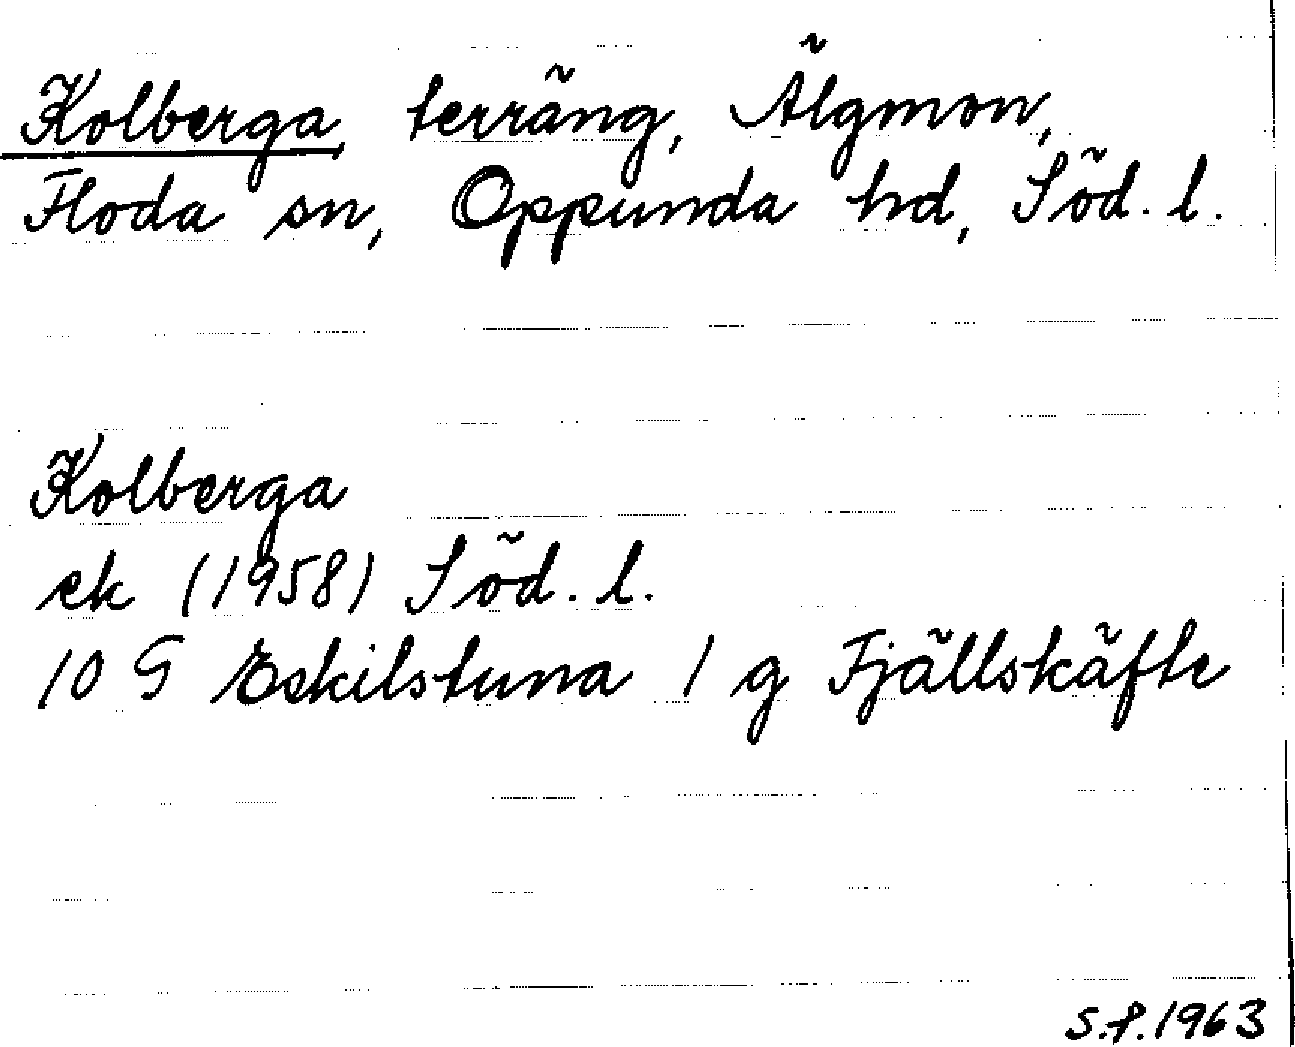 Kolberga, terräng, Älgmon,
Floda sn, Oppunda hd, Söd. l.
Kolberga
ek (1958) Söd. l.
10 G Eskilstuna 1 g Fjällskäfte
S.P. 1963